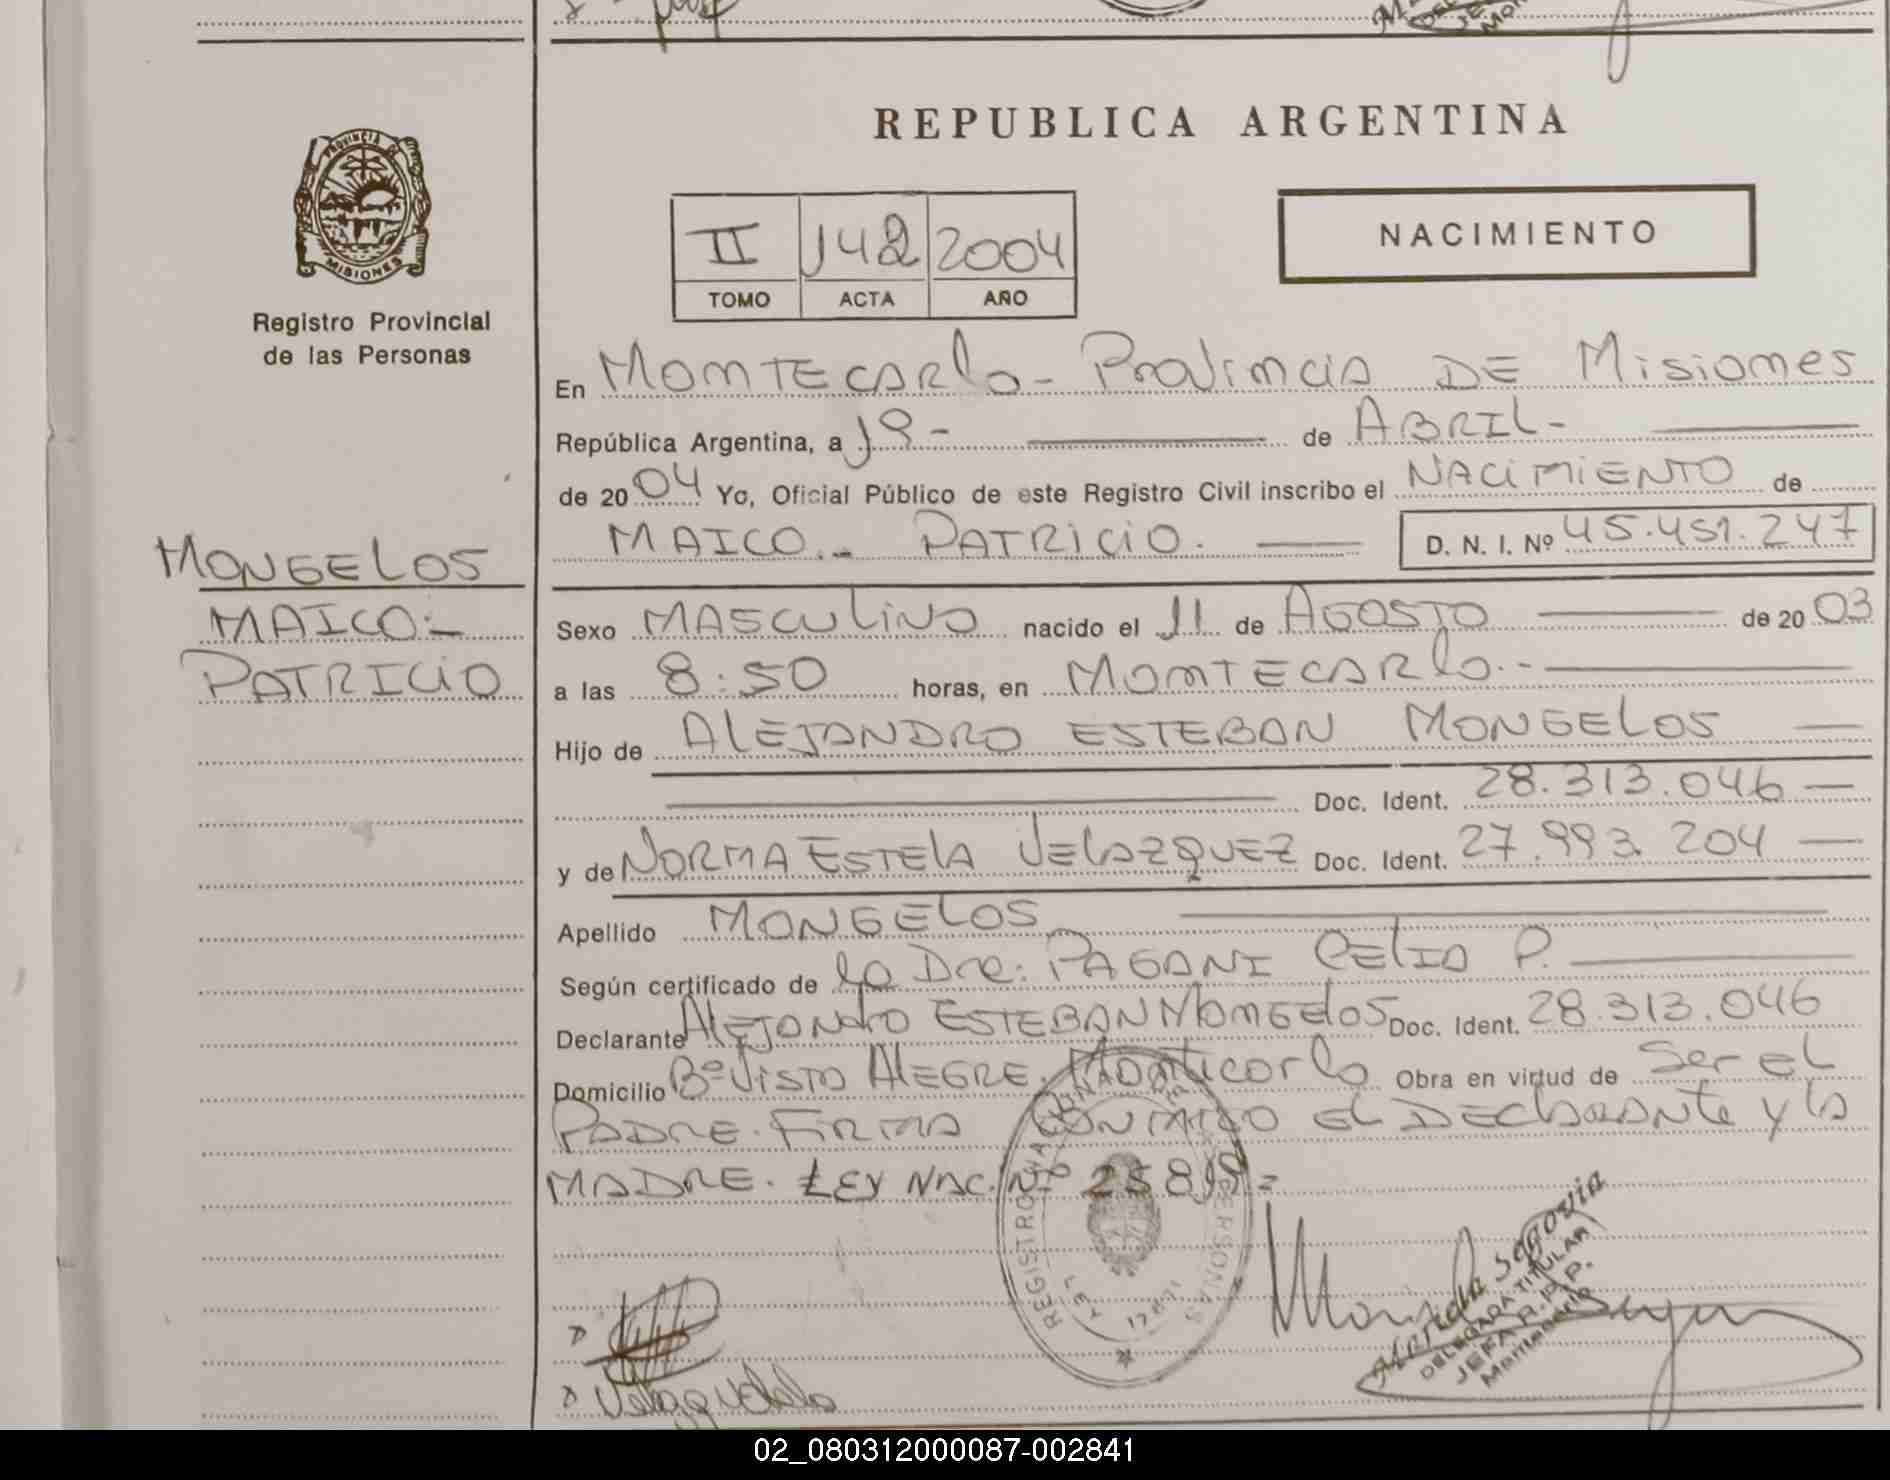 REPUBLICA ARGENTINA
PROVINCIA DE
MISIONES
Registro Provincial
de las Personas
II 142 2004
TOMO ACTA AÑO
NACIMIENTO
En MONTECARlo - Provincia DE Misiones
República Argentina, a 19 - de ABRIL -
de 2004 Yo, Oficial Público de este Registro Civil inscribo el NACIMIENTO de
MAICO - PATRICIO. D. N. I. Nº 45.451.247
MONGELOS
MAICO -
PATRICIO
Sexo MASCULINO nacido el 11 de AGOSTO de 2003
a las 8:50 horas, en MONTECARlo. -
Hijo de ALEJANDRO ESTEBAN MONGELOS
Doc. Ident. 28.313.046
y de NORMA ESTELA VELAZQUEZ Doc. Ident. 27.993.204
Apellido MONGELOS
Según certificado de la Dra: PAGANI CELIA P.
Declarante ALEJANDRO ESTEBAN MONGELOS Doc. Ident. 28.313.046
Domicilio Bº VISTA ALEGRE. Montecarlo Obra en virtud de Ser el
PADRE. FIRMA CONMIGO EL DECLARANTE y la
MADRE. LEY NAC. Nº 25819 =
REGISTRO PERSONAS
Segovia
DELEGADA TITULAR
JEFA R.P.P.
02_080312000087-002841